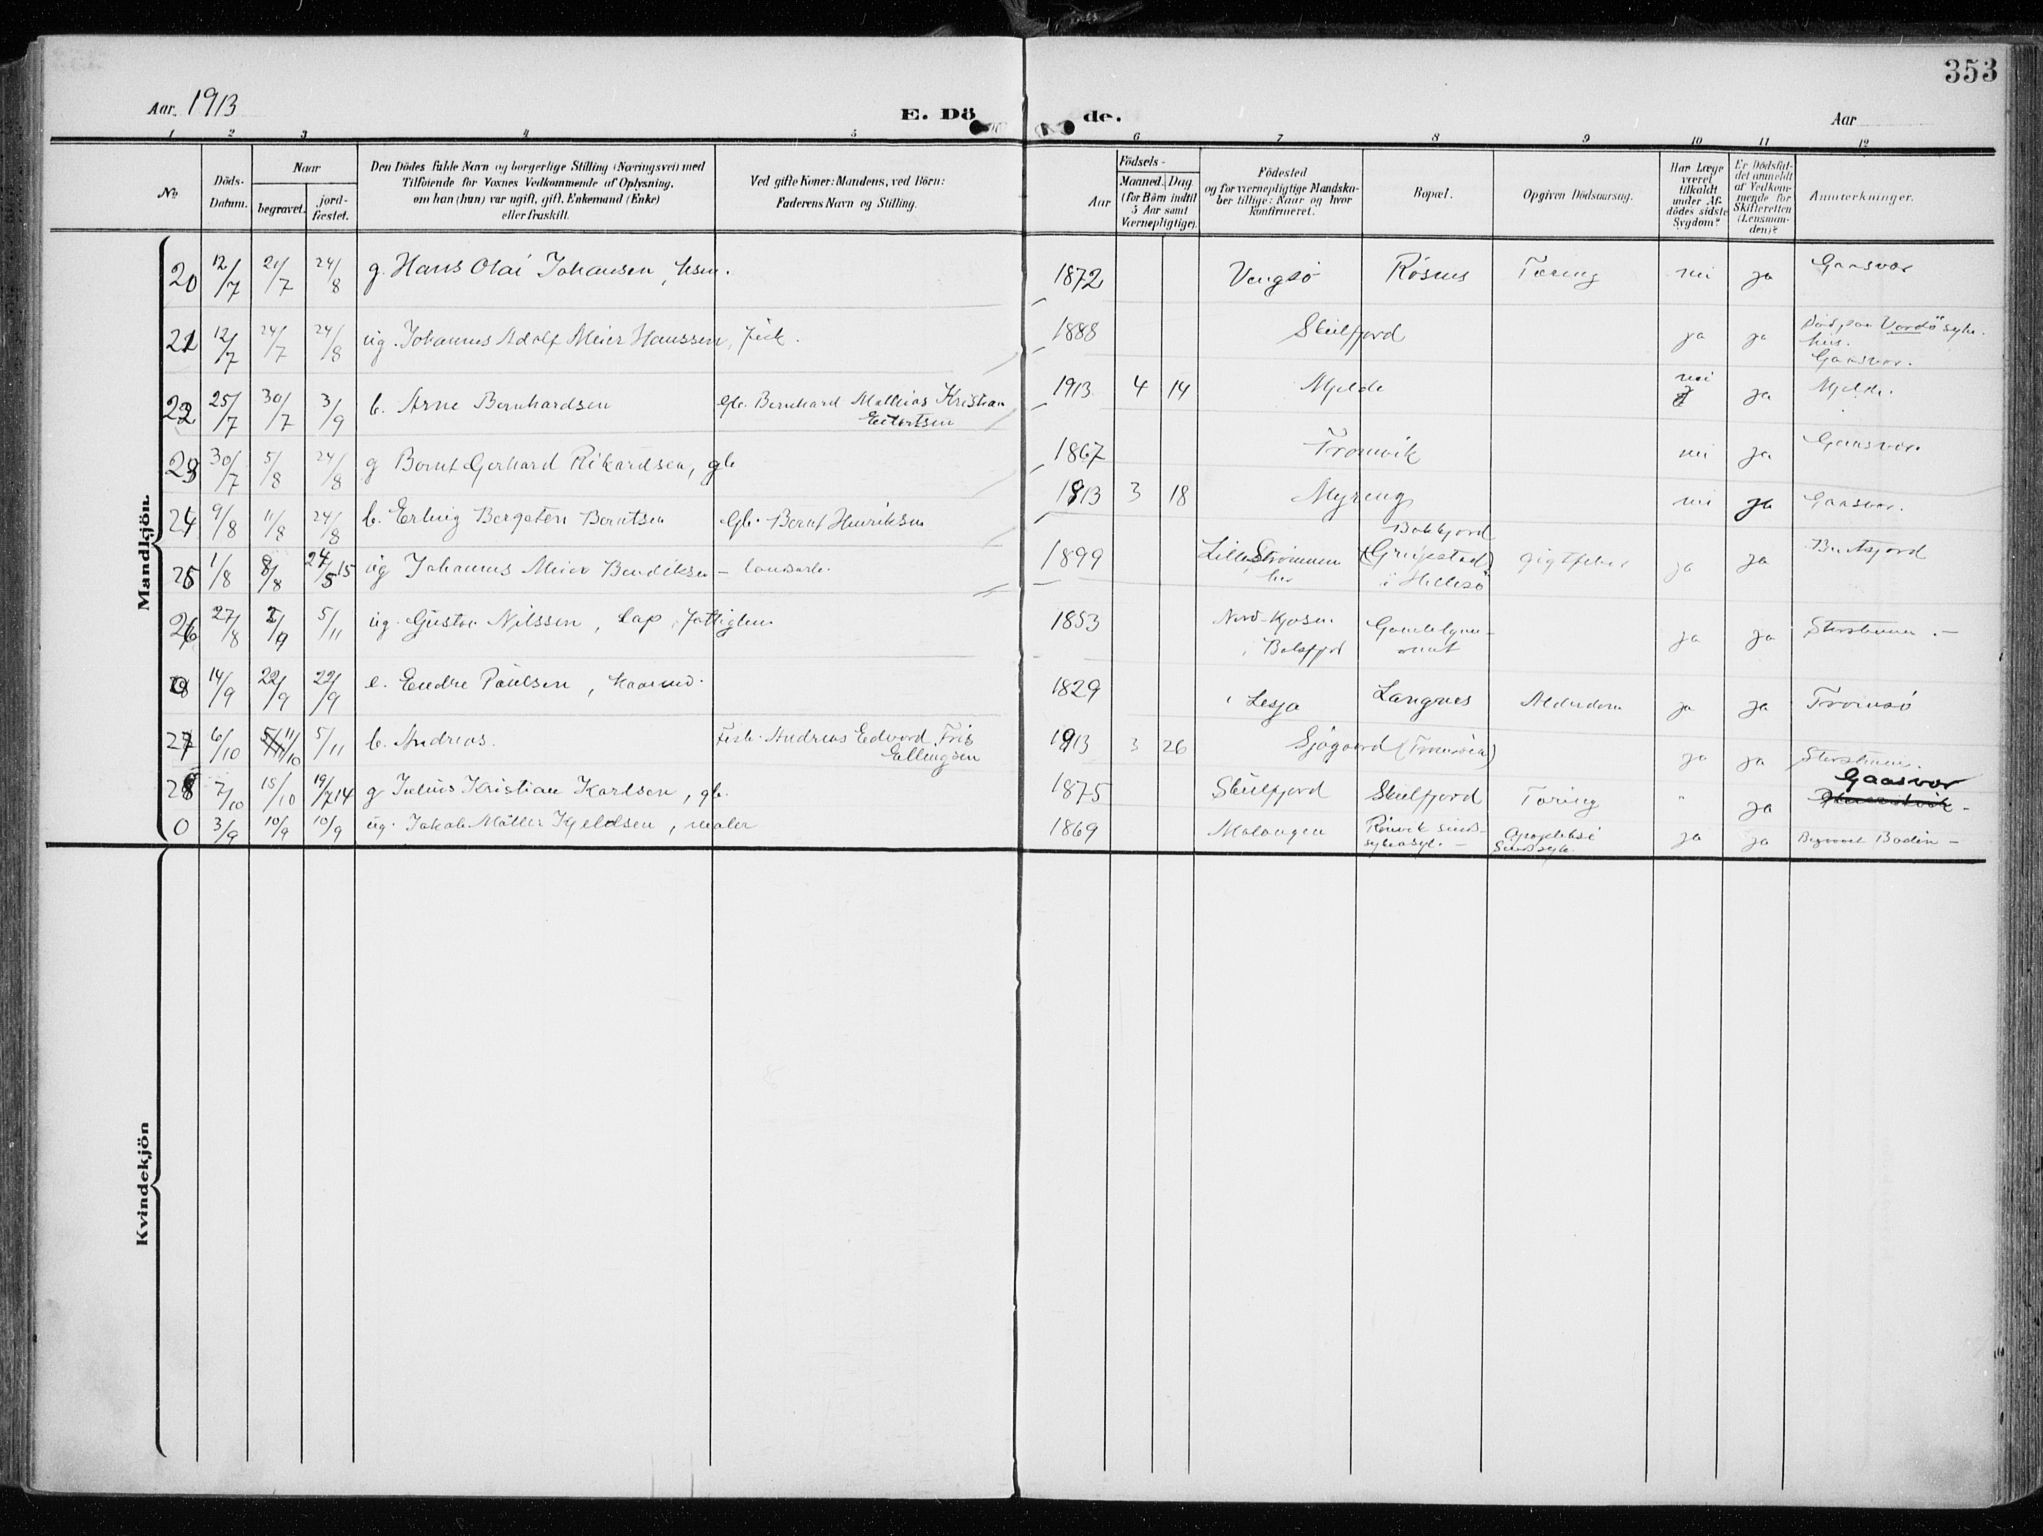 353
Aar. 1913
E. Dö
de.
Aar
1 2 3 4 5 6 7 8 9 10 11 12
No.
Döds-
Datum.
Naar
begravet.
jord-
fæstet.
Den Dödes fulde Navn og borgerlige Stilling (Næringsvei) med
Tilföiende for Voxnes Vedkommende af Oplysning,
om han (hun) var ugift, gift, Enkemand (Enke)
eller fraskilt.
Ved gifte Koner: Mandens, ved Börn:
Faderens Navn og Stilling.
Aar
Födsels-
Maaned. Dag
(for Börn indtil
5 Aar samt
Værnepligtige).
Födested
og for værnepligtige Mandska-
ber tillige: Naar og hvor
konfirmeret.
Bopæl.
Opgiven Dödsaarsag.
Har Læge
været
tilkaldt
under Af-
dödes sidste
Sygdom?
Er Dödsfal-
det anmeldt
af Vedkom-
mende for
Skifteretten
(Lensman-
den)?
Anmærkninger.
Mandkjön.
20 12/7 21/7 24/8 g. Hans Olai Johansen, 1872 Vengsö Røsnes Tæring nei ja Gaasvær
21 12/7 24/7 24/8 ug. Johannes Adolf Meier Hanssen, fisk. 1888 Skulfjord ja ja Död paa Vardö syke-
hus.
Gaasvær.
22 25/7 30/7 3/9 b. Arne Bernhardsen Gb. Bernhard Mathias Kristian
1913 4 14 Mjelde nei ja Mjelde.
23 30/7 5/8 24/8 g Bernt Gerhard Rikardsen, gb 1867 Tromvik nei ja Gaasvær
24 9/8 11/8 24/8 b. Erling Bergeten Berntsen Gb. Bernt Henriksen 1913 3 18 Myreng nei ja Gaasvær.
25 1/8 8/8 24/5 15 ug Johannes Meier Bendiksen - 1899 Lille Strömmen
her
Bakkjord
(Greipstad)
i Hillesö
gigtfeber ja ja Bentsjord
26 27/8 2/9 5/11 ug. Gustav Nilssen, Lap, fattiglem 1853 Nord-Kjosen
i Balsfjord
ja ja Storsteinnes -
14/9 22/9 22/9 e. Endre Paulsen, 1829 Lesja Langnes Alderdom ja ja Tromsö
27 6/10 11/10 5/11 b. Andreas. Fisk. Andreas Edvard Fris
Ellingsen
1913 3 26 Sjögaard (Tromsöen) ja ja Storsteinnes.
28 7/10 15/10 19/7 14 g Julius Kristian Karlsen, gb. 1875 Skulfjord Skulfjord Tæring " ja Gaasvær
0 3/9 10/9 10/9 ug. Jakob Möller Kjeldsen, maler 1869 Malangen Rönvik sinds-
sykeasyl. -
Apopleksi
Sindssyk.
ja ja Begravet Bodin -
Kvindekjön